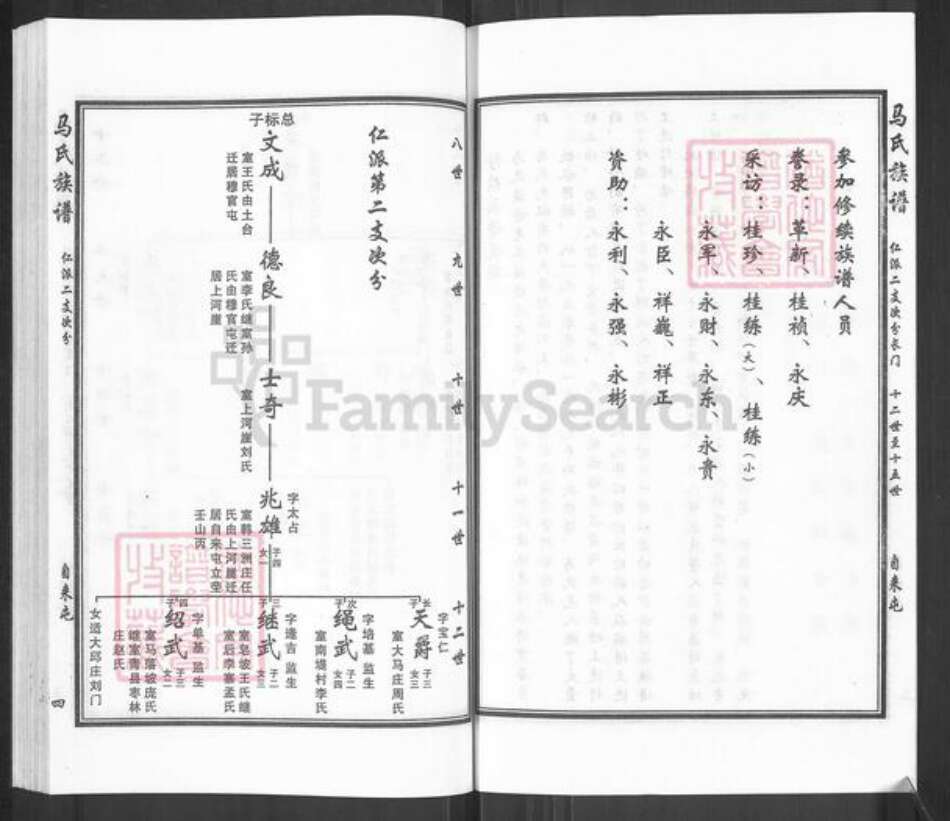 马氏族谱
仁派二支次分长门
十二世至十五世
自来屯
参加修续族谱人员
誊录：革新、桂祯、永庆
采访：桂珍、桂练（大）、桂练（小）
永军、永财、永东、永贵
永臣、祥巍、祥正
资助：永利、永强、永彬
八世
九世
十世
十一世
十二世
仁派第二支次分
总标子
文成
室王氏由土台
迁居穆官屯
德良
室李氏继室孙
氏由穆官屯迁
居上河崖
士奇
室上河崖刘氏
字太占
兆雄
子四
女一
室韩三洲庄任
氏由上河崖迁
居自来屯立茔
壬山丙
长子
字宝仁
天爵
子三
女三
室大马庄周氏
次子
字培基 监生
绳武
子二
女四
室南堤村李氏
三子
字逢吉 监生
继武
子二
女三
室皂坡王氏继
室后李寨孟氏
四子
字单基 监生
绍武
子三
女二
室马落坡庞氏
继室青县枣林
庄赵氏
女适大邱庄刘门
马氏族谱
仁派二支次分
自来屯
四
FamilySearch